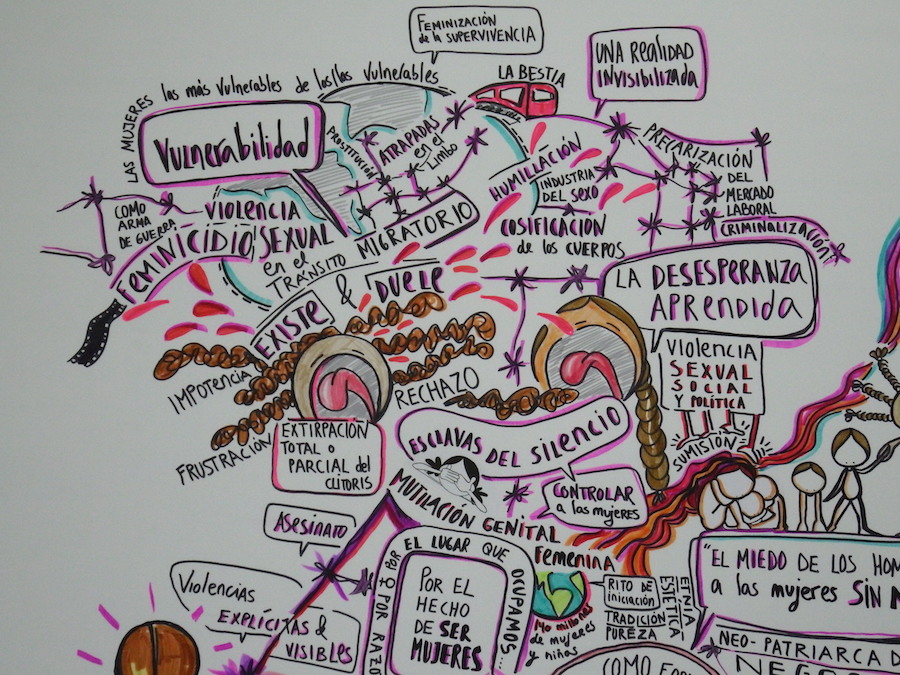 FEMINIZACIÓN
de la SUPERVIVENCIA
LA BESTIA
UNA REALIDAD
INVISIBILIZADA
LAS MUJERES las más vulnerables de los/las vulnerables
VULNERABILIDAD
PROSTITUCIÓN
ATRAPADAS
en el
limbo
HUMILLACIÓN
INDUSTRIA
DEL SEXO
COSIFICACIÓN
de los CUERPOS
PRECARIZACIÓN
DEL
MERCADO
LABORAL
CRIMINALIZACIÓN
COMO
ARMA
DE GUERRA
FEMINICIDIO/
VIOLENCIA
SEXUAL
en el
TRÁNSITO
MIGRATORIO
EXISTE & DUELE
LA DESESPERANZA
APRENDIDA
VIOLENCIA
SEXUAL
SOCIAL
Y POLÍTICA
SUMISIÓN
IMPOTENCIA
FRUSTRACIÓN
RECHAZO
EXTIRPACIÓN
TOTAL O
PARCIAL del
CLITORIS
ESCLAVAS DEL SILENCIO
CONTROLAR
a las mujeres
MUTILACIÓN GENITAL
Femenina
ASESINATO
VIOLENCIAS
EXPLÍCITAS &
VISIBLES
POR EL LUGAR QUE OCUPAMOS...
POR EL
HECHO
DE SER
MUJERES
RITO DE
INICIACIÓN
TRADICIÓN
PUREZA
ETNIA
ESTÉTICA
140 millones
de mujeres
y niñas
"EL MIEDO DE LOS HOM
a las mujeres SIN M
NEO-PATRIARCA D
NEG
COMO FOR
O POR RAZO